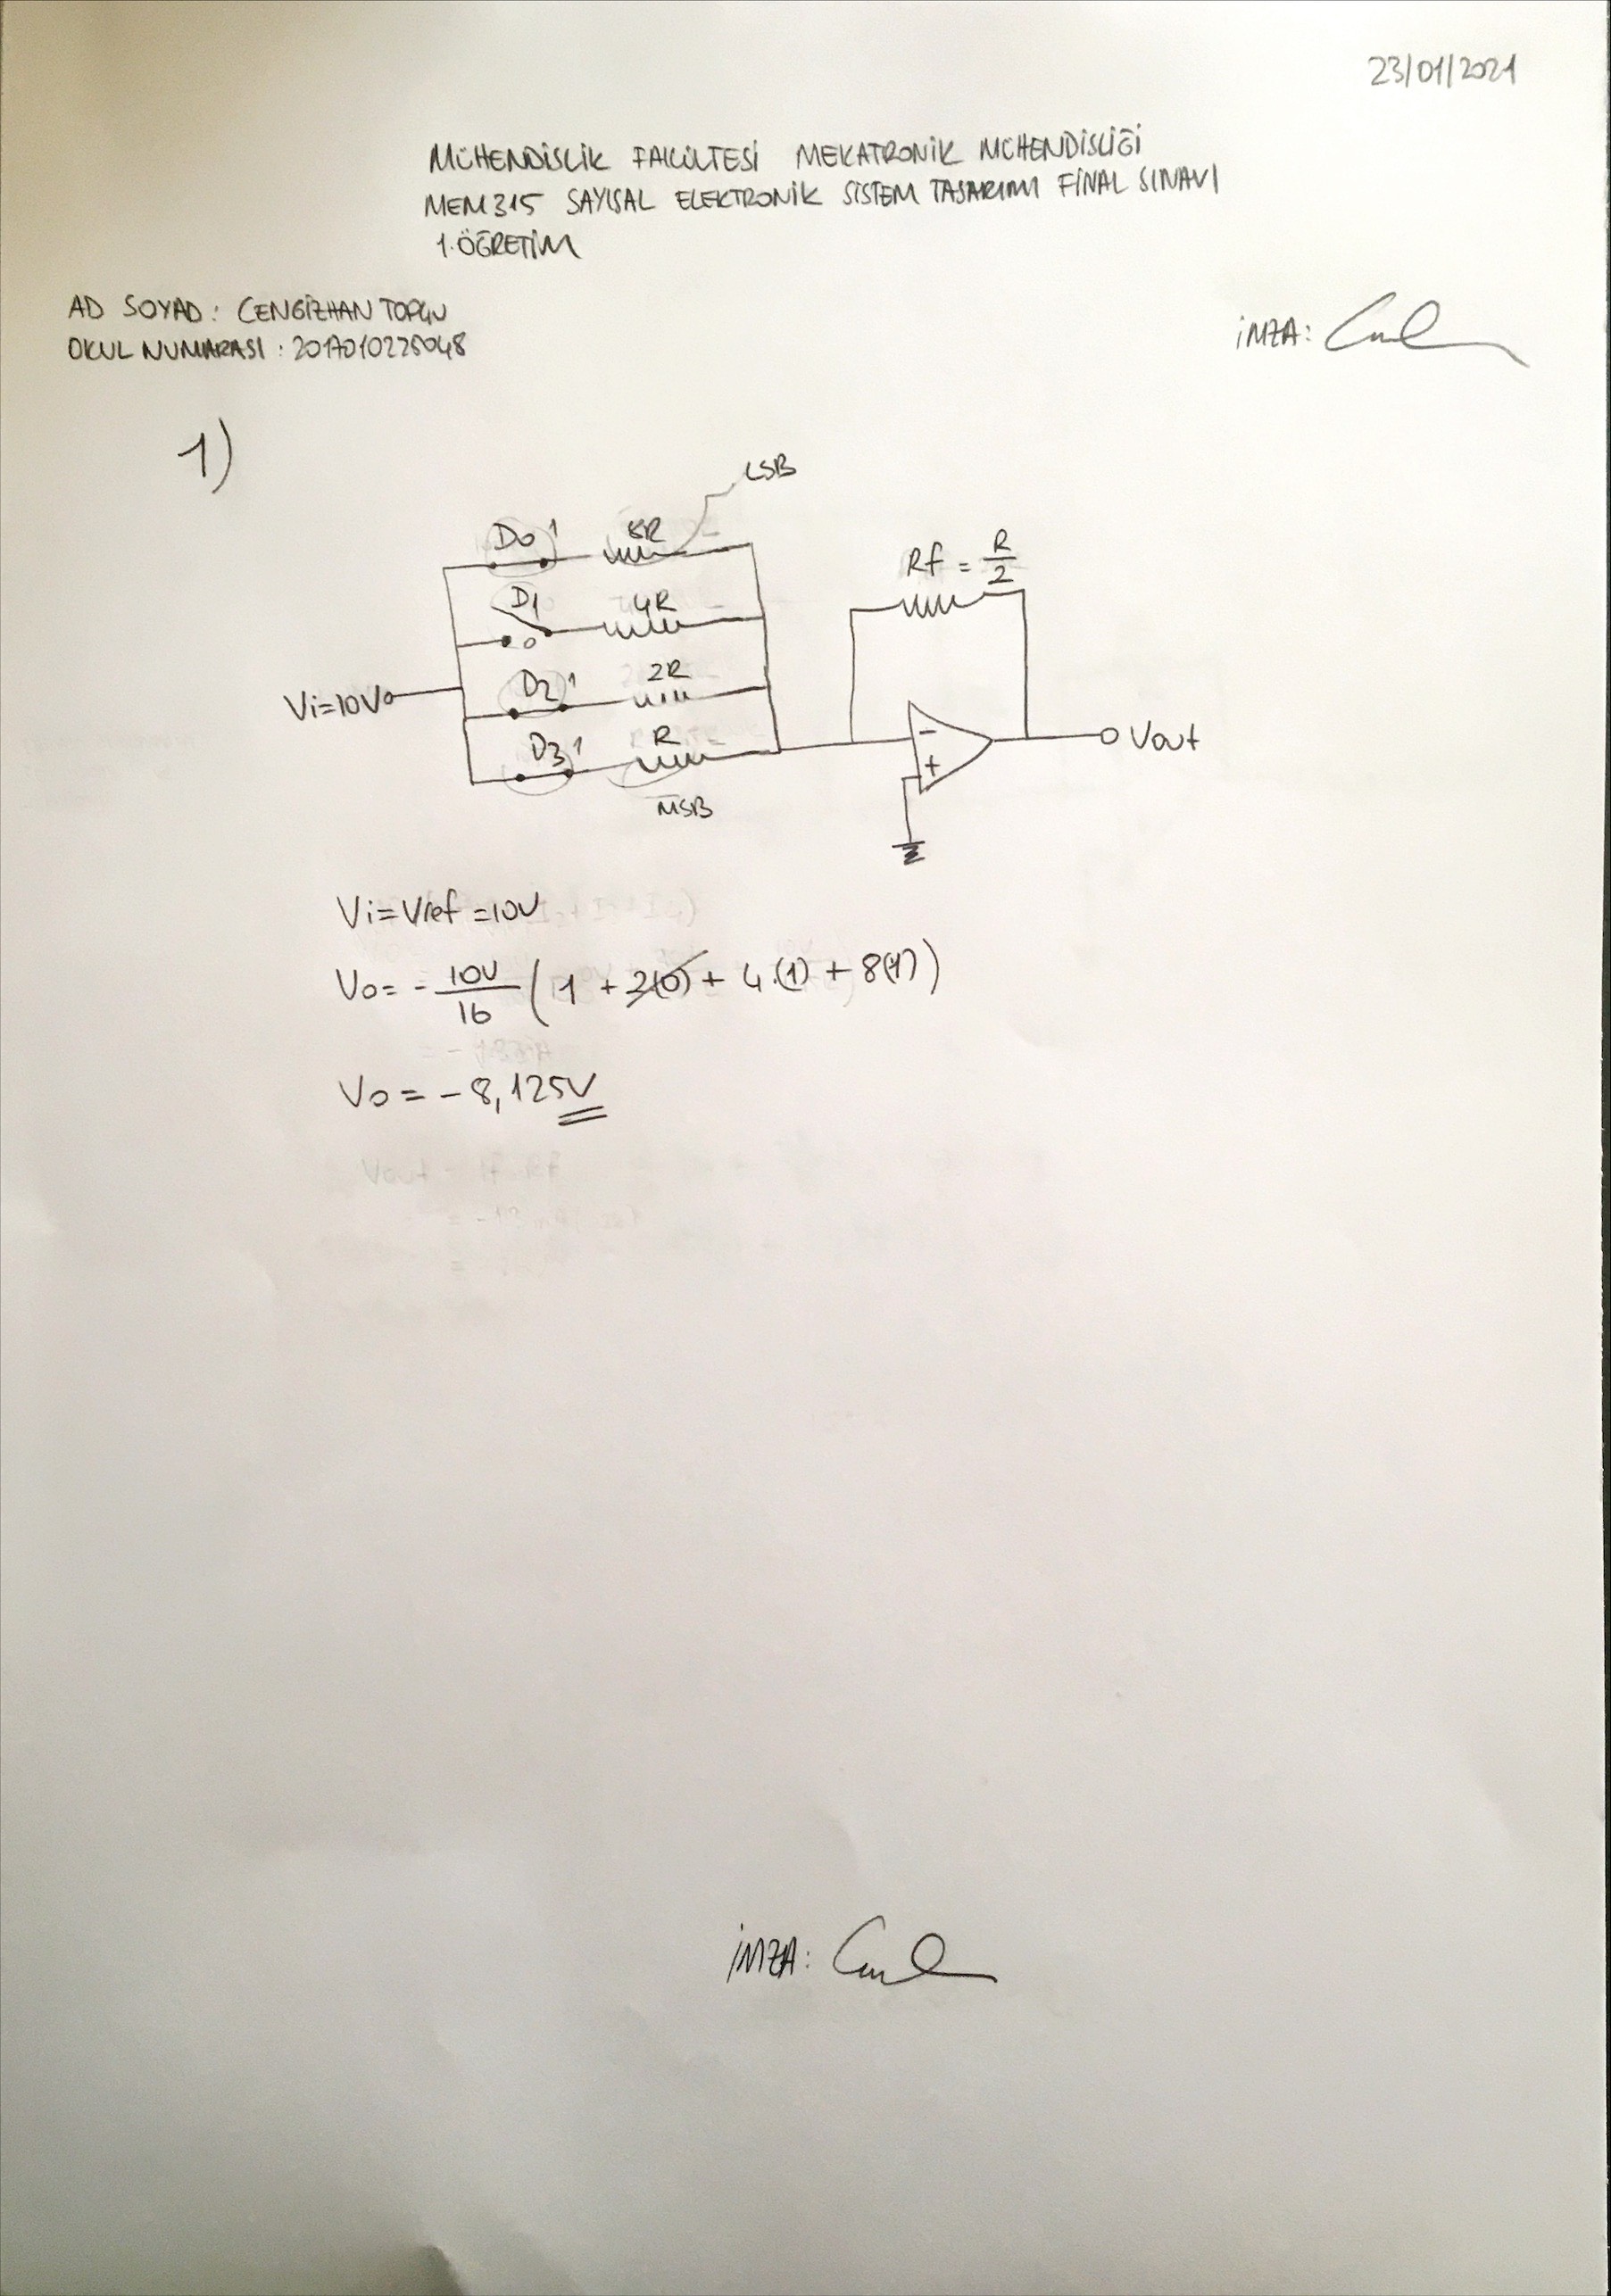 23/01/2021
MÜHENDİSLİK FAKÜLTESİ MEKATRONİK MÜHENDİSLİĞİ
MEM315 SAYISAL ELEKTRONİK SİSTEM TASARIMI FİNAL SINAVI
1.ÖĞRETİM
AD SOYAD: CENGİZHAN TOPÇU
OKUL NUMARASI: 2017010225048
İMZA:
1)
LSB
D0 1 8R
Rf = R/2
D1 0 4R
D2 1 2R
Vi=10V
D3 1 R
MSB
- +
Vout
Vi=Vref=10V
Vo= - 10V/16 (1 + 2(0) + 4.(1) + 8(1))
Vo = -8,125V
İMZA: